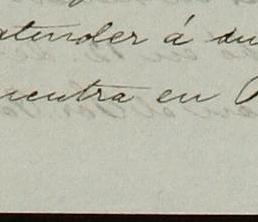 atender á su
uentra en